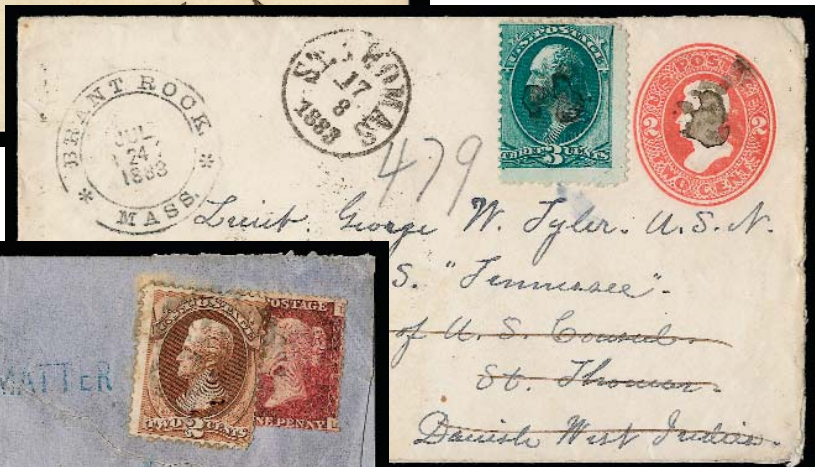 BRANT ROCK.
JUL
24
1883
MASS.
ST. THOMAS
17
8
1883
U.S. POSTAGE
THREE 3 CENTS
U.S. POSTAGE
2 2
TWO CENTS
479
Lieut. George W. Tyler. U.S.N.
S. "Tennessee".
of U.S. Consul.
St. Thomas.
Danish West Indies.
MATTER
U.S. POSTAGE
TWO 2 CENTS
POSTAGE
NE PENNY